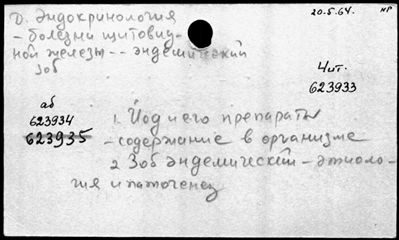 D. Эндокринология
20.5.64. НР
- болезни щитовид-
ной железы -- эндемический
зоб
Чит.
623933
аб
623934
623935
1. Йод и его препараты
- содержание в организме
2 Зоб эндемический - этиоло-
гия и патогенез